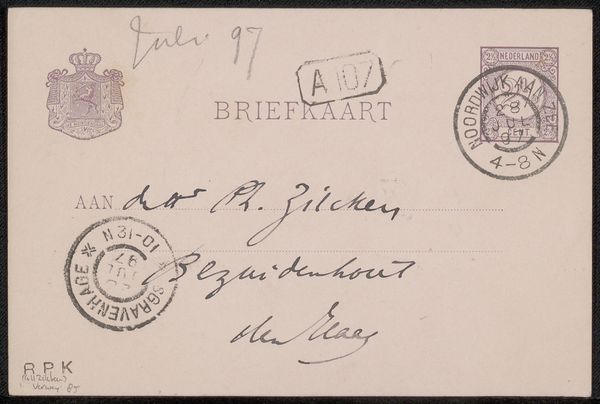 Juli 97
A 107
2½ NEDERLAND 2½
CENT
NOORDWIJK AAN ZEE
28
JUL
97
4-8 N
BRIEFKAART
AAN den Hr Ph. Zilcken
Bezuidenhout
den Haag
'SGRAVENHAGE
10-12 N
JUL
97
R P K
(coll Zilcken)
Verwey 85